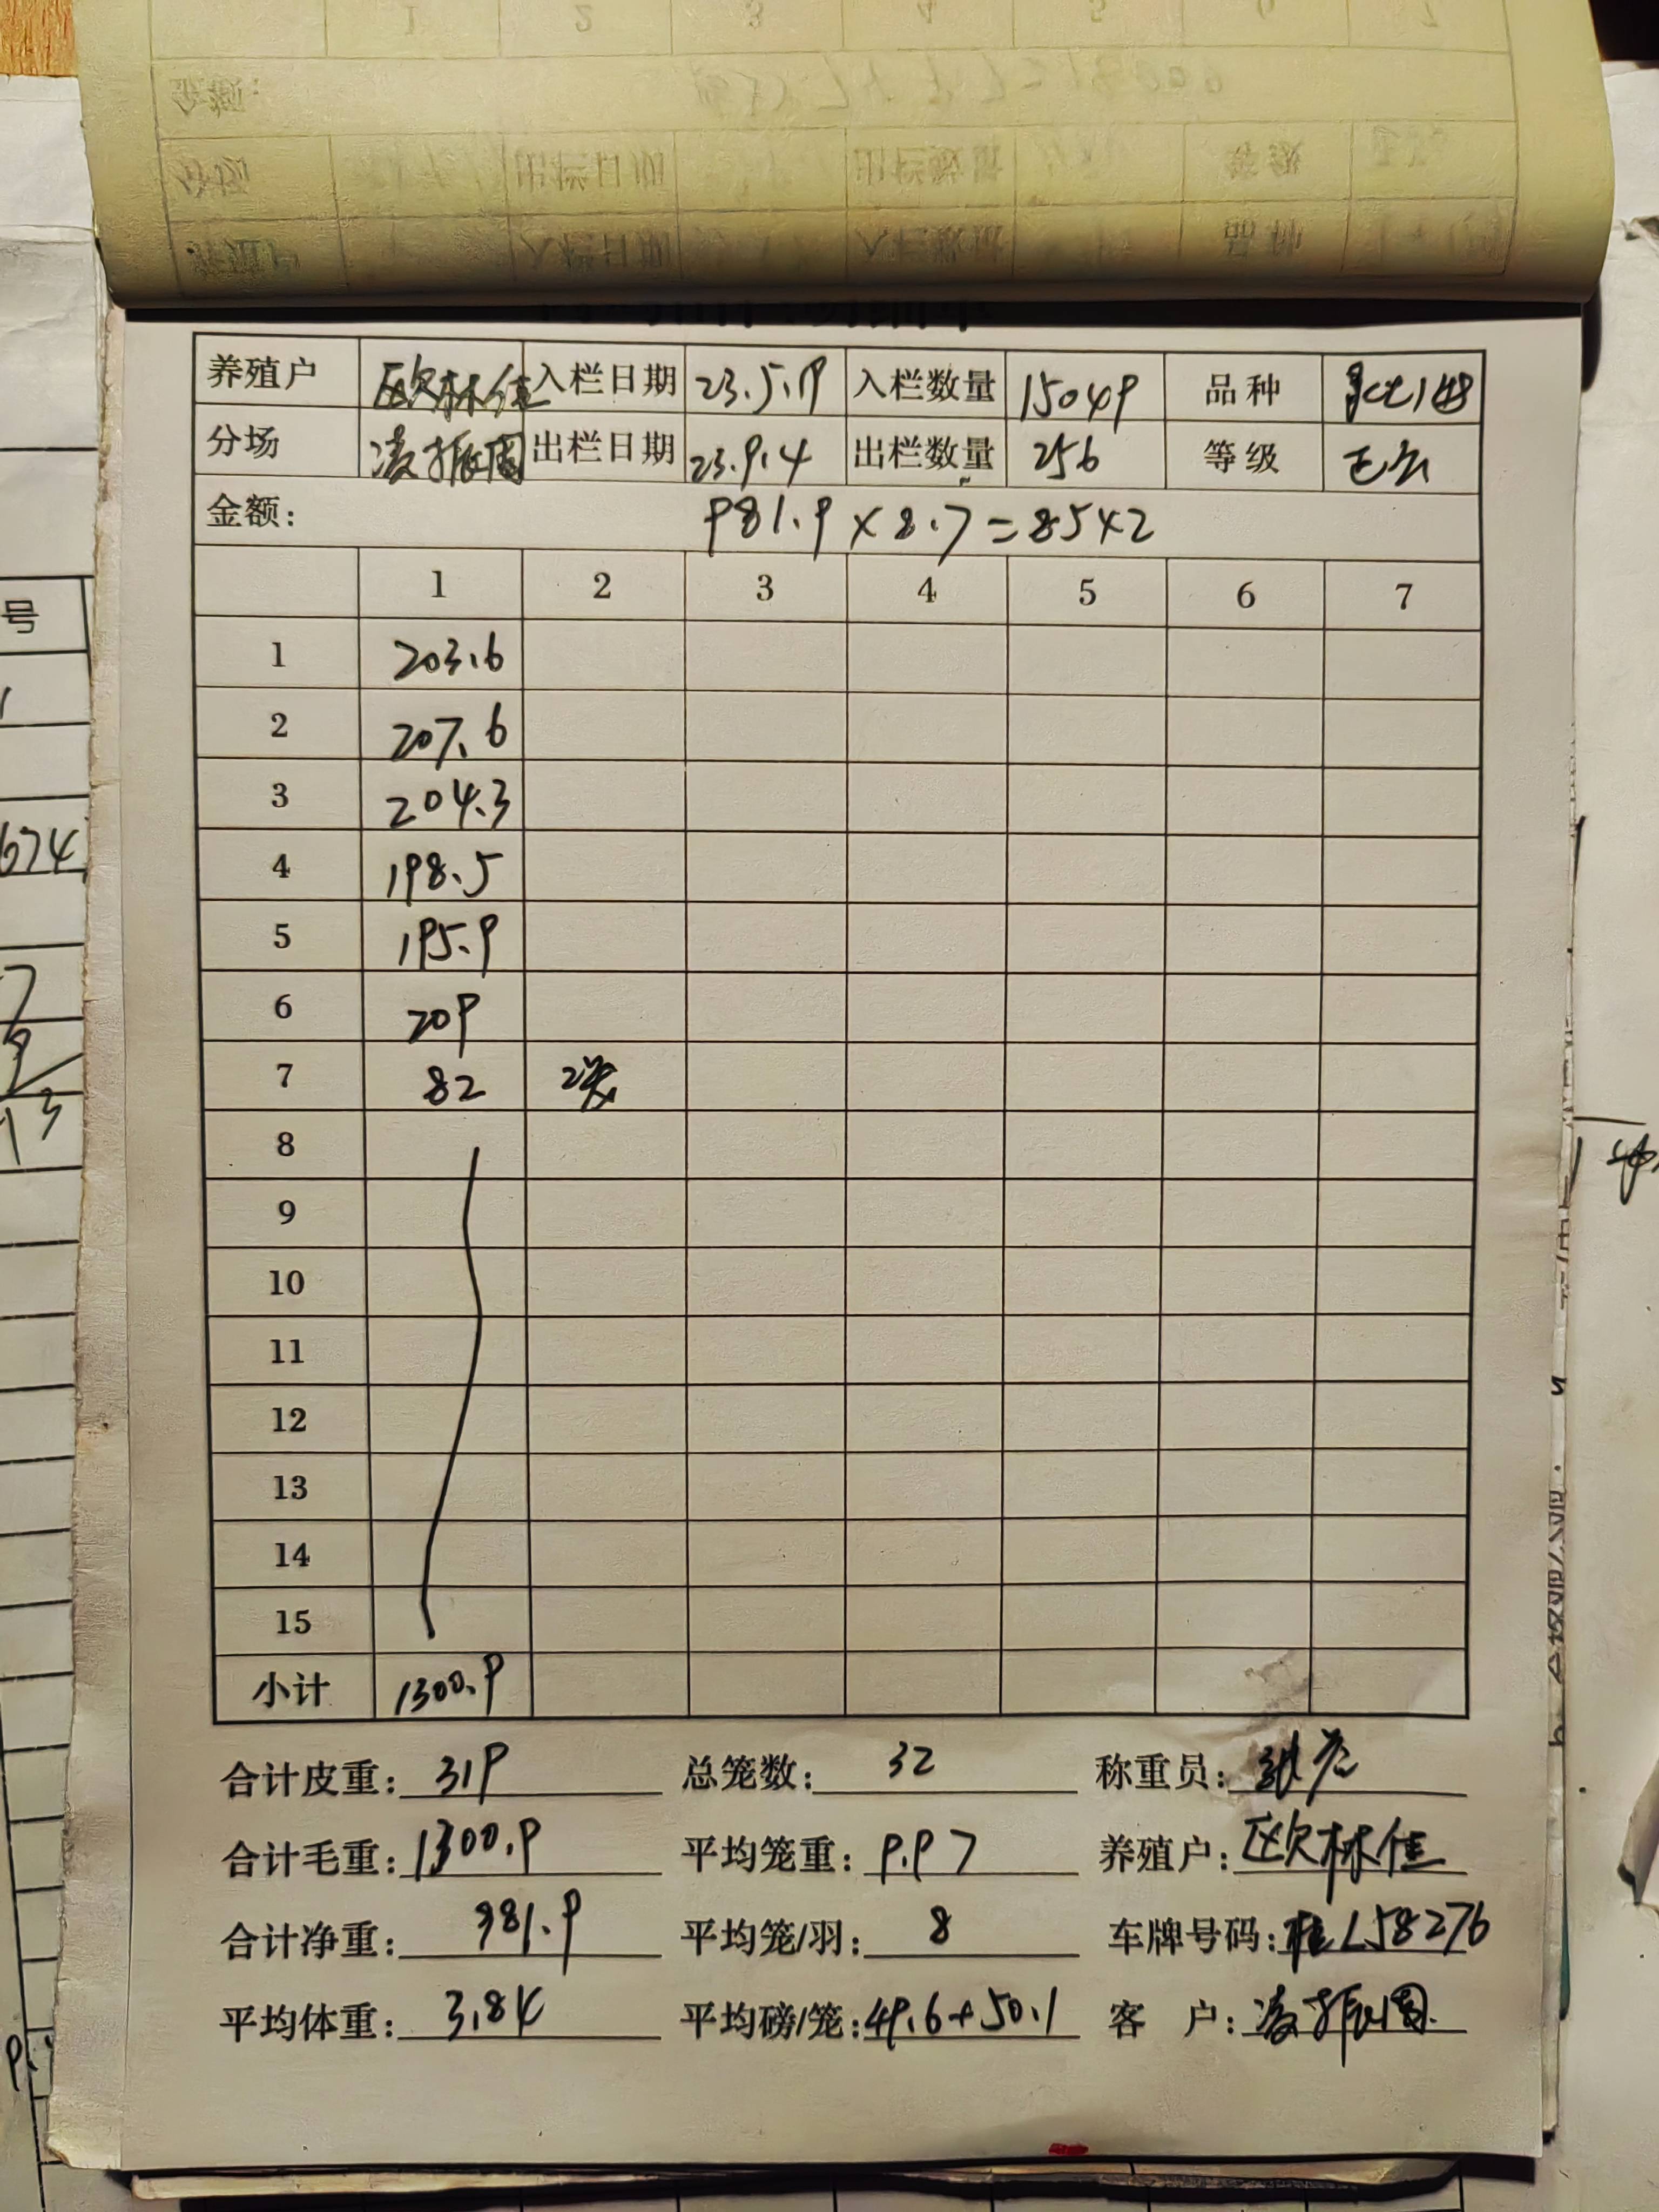 养殖户 欧林佳 入栏日期 23.5.19 入栏数量 15049 品种
分场 凌振周 出栏日期 23.9.4 出栏数量 256 等级 正公
金额: 981.9×8.7=8542
1 2 3 4 5 6 7
1 203.6
2 207.6
3 204.3
4 198.5
5 195.9
6 209
7 82 2笼
8
9
10
11
12
13
14
15
小计 1300.9
合计皮重: 319 总笼数: 32 称重员:
合计毛重: 1300.9 平均笼重: 9.97 养殖户: 欧林佳
合计净重: 981.9 平均笼/羽: 8 车牌号码: 桂L58276
平均体重: 3.84 平均磅/笼: 49.6+50.1 客户: 凌振周
号
674